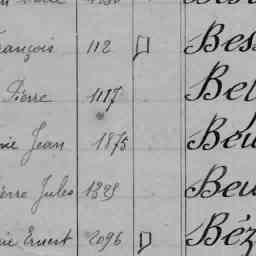 rançois 112 Bes
Pierre 1117 Bel
Jean 1875 Beu
Jules 1329 Beu
Ernest 2096 Béz